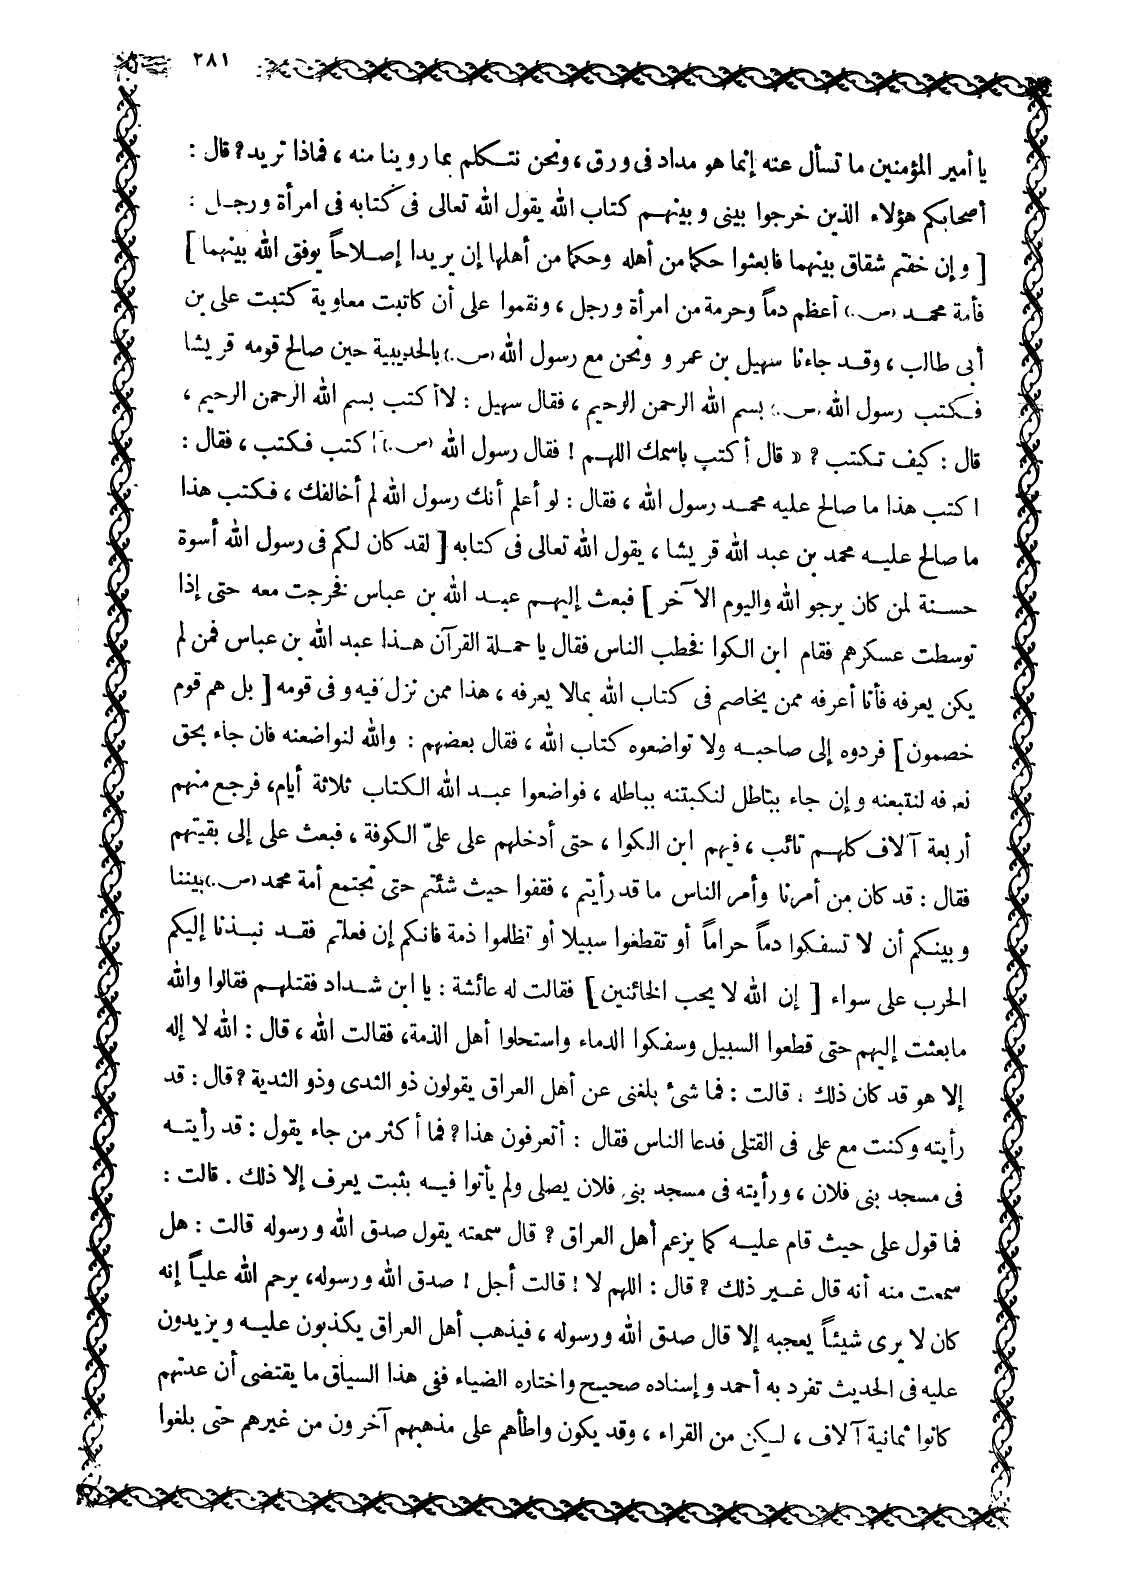 ٢٨١
يا أمير المؤمنين ما تسأل عنه إنما هو مداد فى ورق ، ونحن نتكلم بما روينا منه ، فماذا تريد ؟ قال :
أصحابكم هؤلاء الذين خرجوا بينى وبينهم كتاب الله يقول الله تعالى فى كتابه فى امرأة ورجل :
[ وإن خفتم شقاق بينهما فابعثوا حكما من أهله وحكما من أهلها إن يريدا إصلاحاً يوفق الله بينهما ]
فأمة محمد (ص.) أعظم دماً وحرمة من امرأة ورجل ، ونقموا على أن كاتبت معاوية كتبت على بن
أبى طالب ، وقد جاءنا سهيل بن عمرو ونحن مع رسول الله (ص.) بالحديبية حين صالح قومه قريشا
فكتب رسول الله (ص.) بسم الله الرحمن الرحيم ، فقال سهيل : لا أكتب بسم الله الرحمن الرحيم ،
قال : كيف تكتب ؟ « قال أكتب باسمك اللهم ! فقال رسول الله (ص.) اكتب فكتب ، فقال :
اكتب هذا ما صالح عليه محمد رسول الله ، فقال : لو أعلم أنك رسول الله لم أخالفك ، فكتب هذا
ما صالح عليه محمد بن عبد الله قريشا ، يقول الله تعالى فى كتابه [ لقد كان لكم فى رسول الله أسوة
حسنة لمن كان يرجو الله واليوم الآخر ] فبعث إليهم عبد الله بن عباس فخرجت معه حتى إذا
توسطت عسكرهم فقام ابن الكوا فخطب الناس فقال يا حملة القرآن هذا عبد الله بن عباس فمن لم
يكن يعرفه فأنا أعرفه ممن يخاصم فى كتاب الله بمالا يعرفه ، هذا ممن نزل فيه وفى قومه [ بل هم قوم
خصمون ] فردوه إلى صاحبه ولا تواضعوه كتاب الله ، فقال بعضهم : والله لنواضعنه فان جاء بحق
نعرفه لنتبعنه وإن جاء بباطل لنكبتنه بباطله ، فواضعوا عبد الله الكتاب ثلاثة أيام، فرجع منهم
أربعة آلاف كلهم تائب ، فيهم ابن الكوا ، حتى أدخلهم على علىّ الكوفة ، فبعث على إلى بقيتهم
فقال : قد كان من أمرنا وأمر الناس ما قد رأيتم ، فقفوا حيث شئتم حتى تجتمع أمة محمد (ص.) بيننا
وبينكم أن لا تسفكوا دماً حراماً أو تقطعوا سبيلا أو تظلموا ذمة فانكم إن فعلتم فقد نبذنا إليكم
الحرب على سواء [ إن الله لا يحب الخائنين ] فقالت له عائشة : يا ابن شداد فقتلهم فقالوا والله
مابعثت إليهم حتى قطعوا السبيل وسفكوا الدماء واستحلوا أهل الذمة، فقالت الله ، قال : الله لا إله
إلا هو قد كان ذلك . قالت : فما شئ بلغنى عن أهل العراق يقولون ذو الثدى وذو الثدية ؟ قال : قد
رأيته وكنت مع على فى القتلى فدعا الناس فقال : أتعرفون هذا ؟ فما أكثر من جاء يقول : قد رأيته
فى مسجد بنى فلان ، ورأيته فى مسجد بنى فلان يصلى ولم يأتوا فيه بثبت يعرف إلا ذلك . قالت :
فما قول على حيث قام عليه كما يزعم أهل العراق ؟ قال سمعته يقول صدق الله ورسوله قالت : هل
سمعت منه أنه قال غير ذلك ؟ قال : اللهم لا ! قالت أجل ! صدق الله ورسوله، يرحم الله علياً إنه
كان لا يرى شيئاً يعجبه إلا قال صدق الله ورسوله ، فيذهب أهل العراق يكذبون عليه ويزيدون
عليه فى الحديث تفرد به أحمد وإسناده صحيح واختاره الضياء ففى هذا السياق ما يقتضى أن عدتهم
كانوا ثمانية آلاف ، لكن من القراء ، وقد يكون واطأهم على مذهبهم آخرون من غيرهم حتى بلغوا